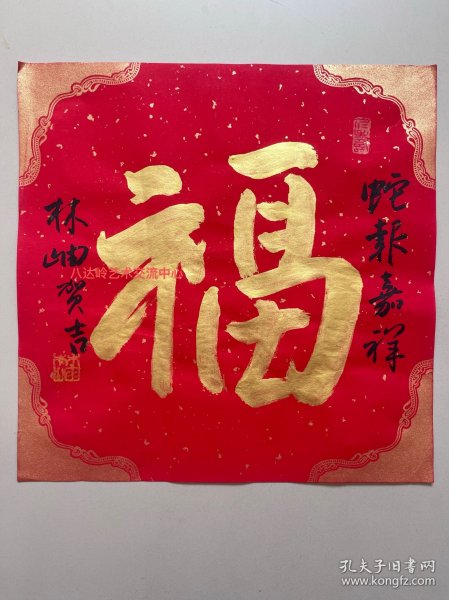 福
蛇报嘉祥
林岫贺吉
八达岭艺术交流中心
孔夫子旧书网
www.kongfz.com